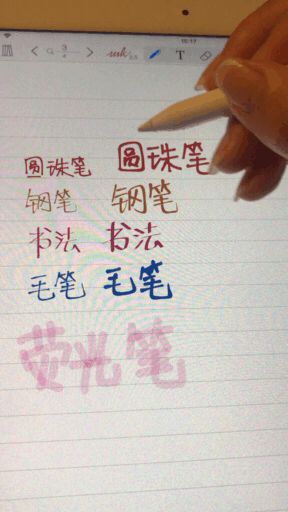 圆珠笔 圆珠笔
钢笔 钢笔
书法 书法
毛笔 毛笔
荧光笔